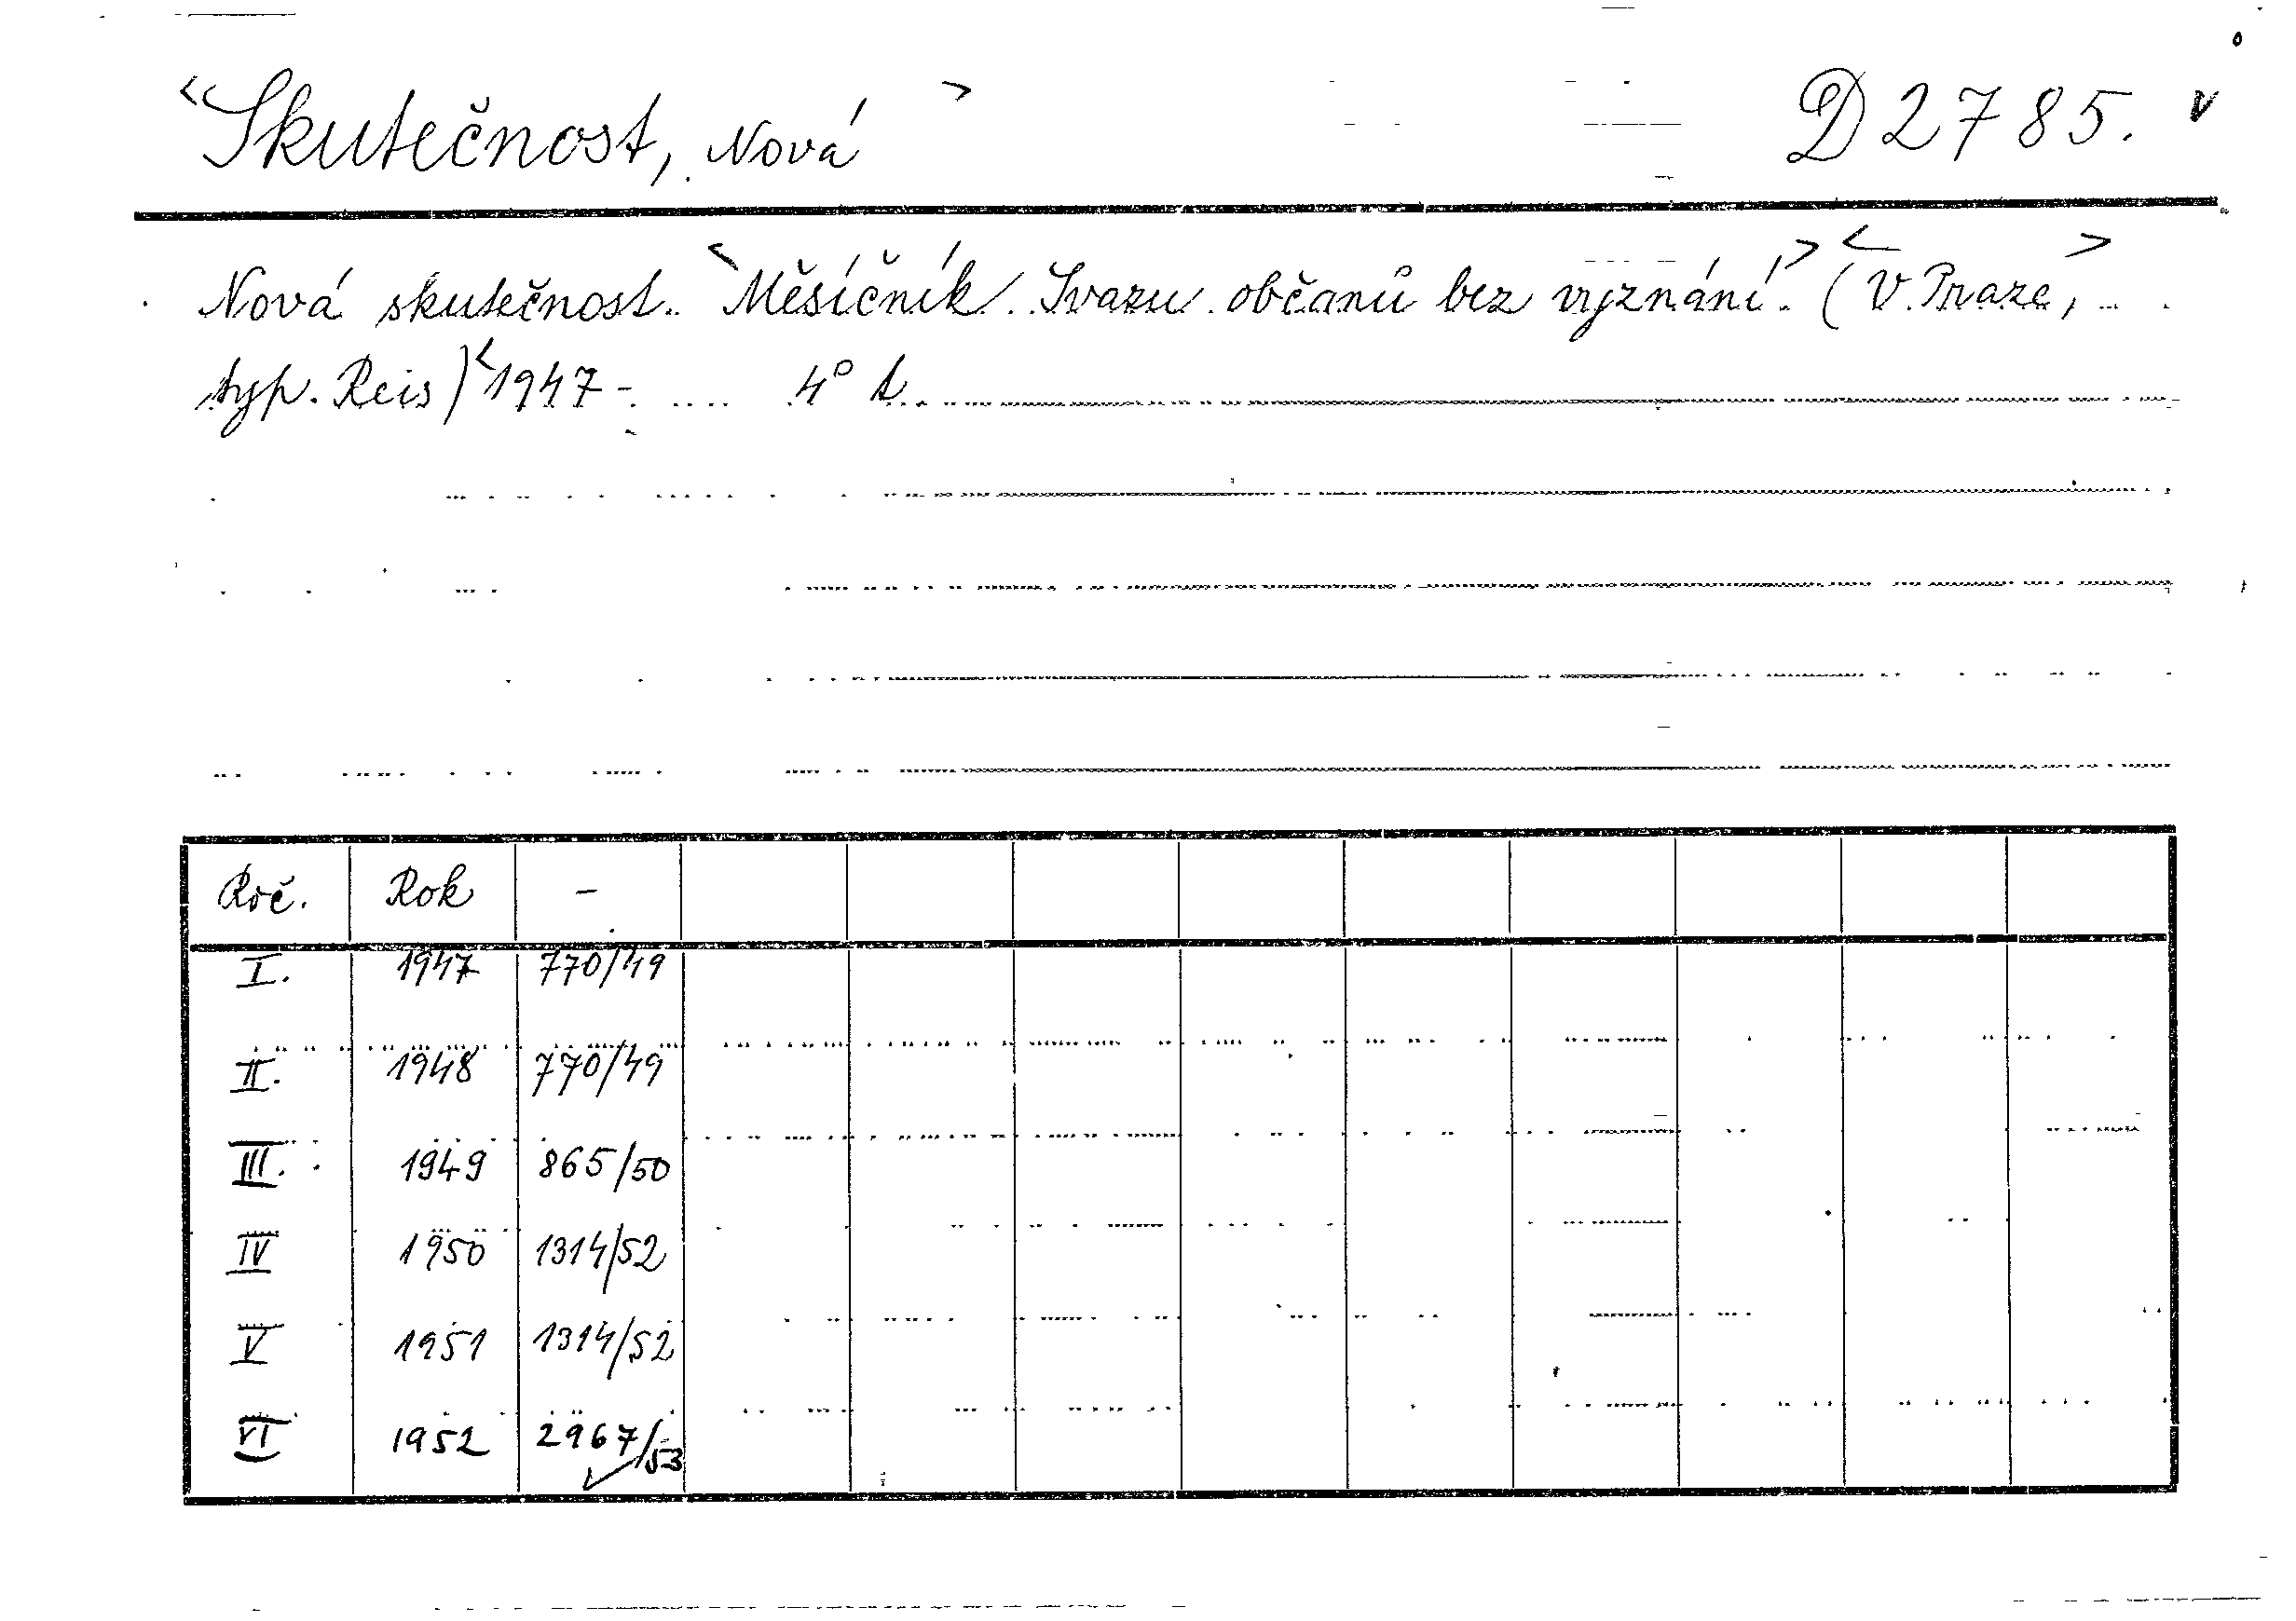 <Skutečnost, Nová> D 2785. v
Nová skutečnost. <Měsíčník Svazu občanů bez vyznání.> <(V Praze,>
typ. Reis)< 1947- 4° t.
Roč. Rok -
I. 1947 770/49
II. 1948 770/49
III. 1949 865/50
IV 1950 1314/52
V 1951 1314/52
VI 1952 2967/53